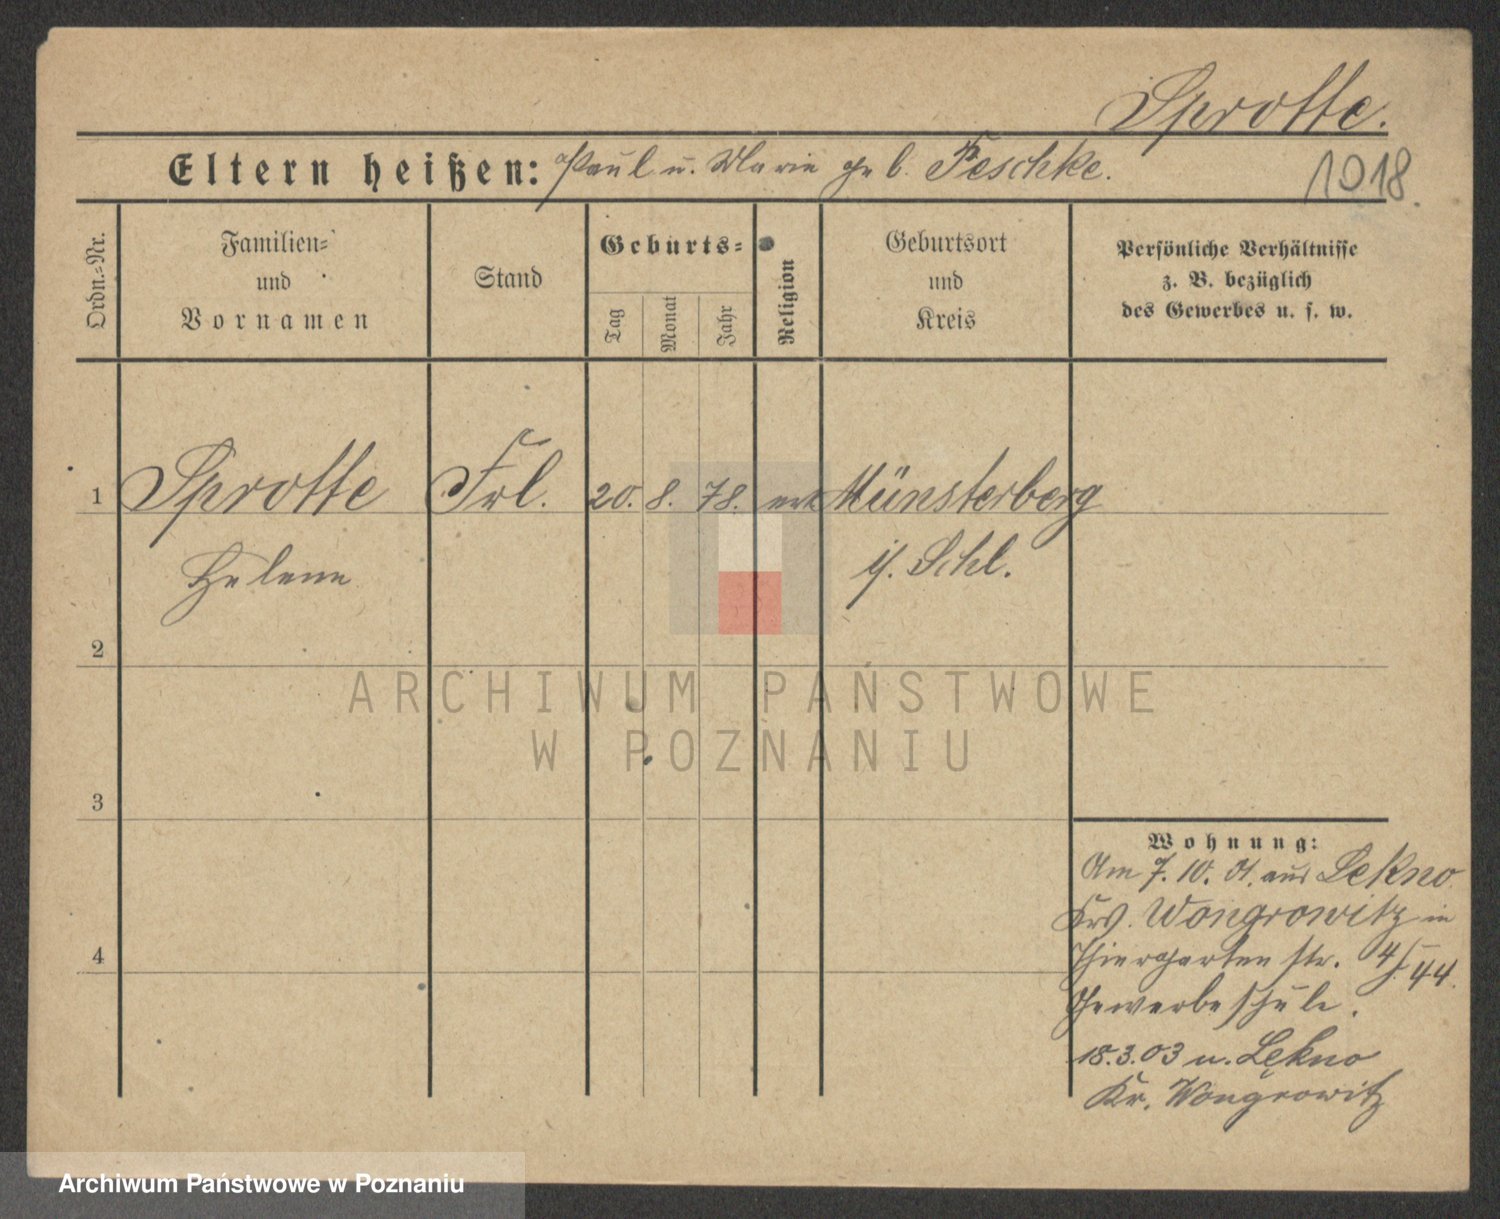 Sprotte.
Eltern heißen: Paul u. Marie geb. Peschke.
1018.
Ordn.=Nr.
Familien=
und
Vornamen
Stand
Geburts=
Tag
Monat
Jahr
Religion
Geburtsort
und
Kreis
Persönliche Verhältnisse
z. B. bezüglich
des Gewerbes u. s. w.
1 Sprotte Frl. 20. 8. 78. Münsterberg
Helene i/. Schl.
2
ARCHIWUM PAŃSTWOWE
W POZNANIU
3
Wohnung:
Am 7. 10. 01. aus Lekno
Krs. Wongrowitz in
4
Thiergartenstr. 4/I. 44.
Gewerbeschule.
18.3.03 n. Lekno
Kr. Wongrowitz
Archiwum Państwowe w Poznaniu